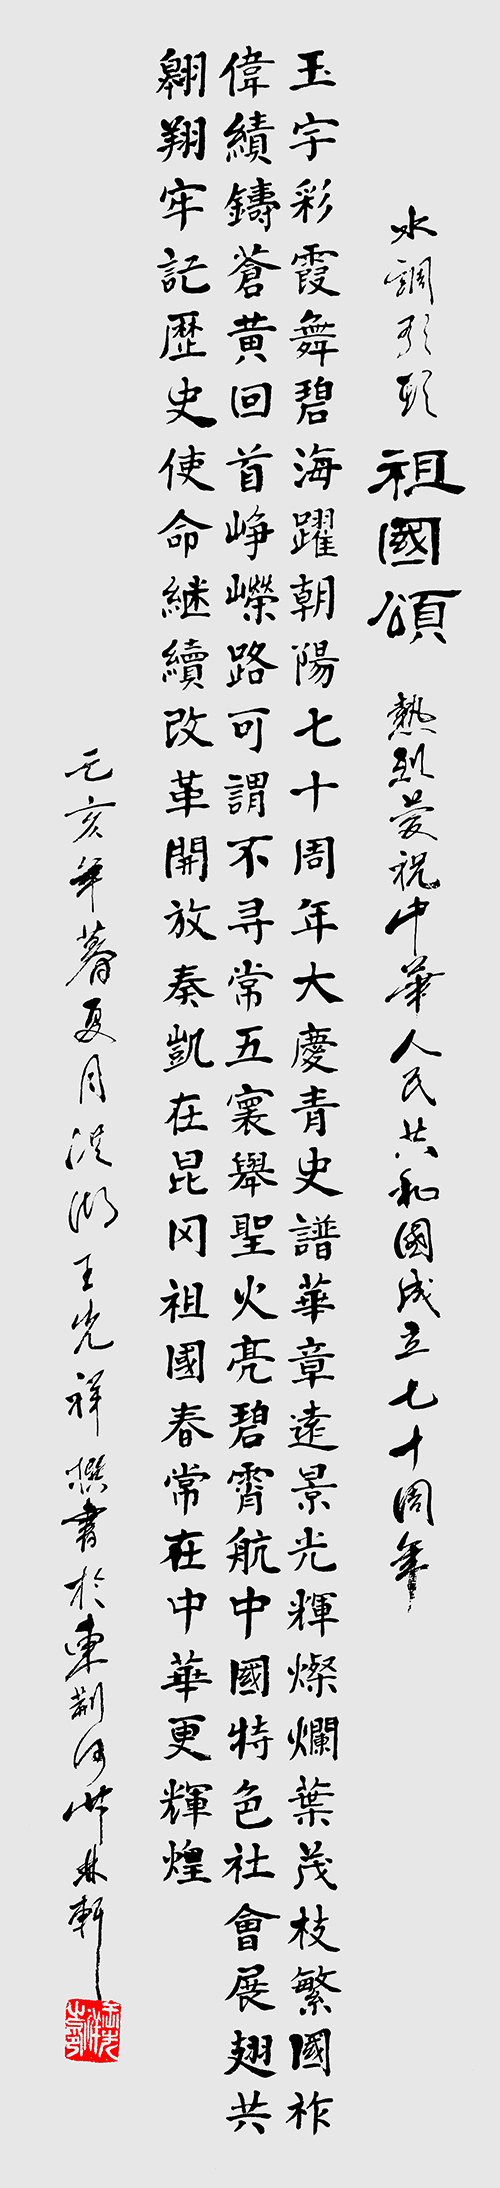 水調歌頭 祖國頌 熱烈慶祝中華人民共和國成立七十周年
玉宇彩霞舞碧海躍朝陽七十周年大慶青史譜華章遠景光輝燦爛葉茂枝繁國祚
偉績鑄蒼黄回首峥嶸路可謂不寻常五寰舉聖火亮碧霄航中國特色社會展翅共
翱翔牢記歴史使命継續改革開放奏凱在昆冈祖國春常在中華更輝煌
己亥年暮夏月洪湖王光祥撰書於東荆河林軒